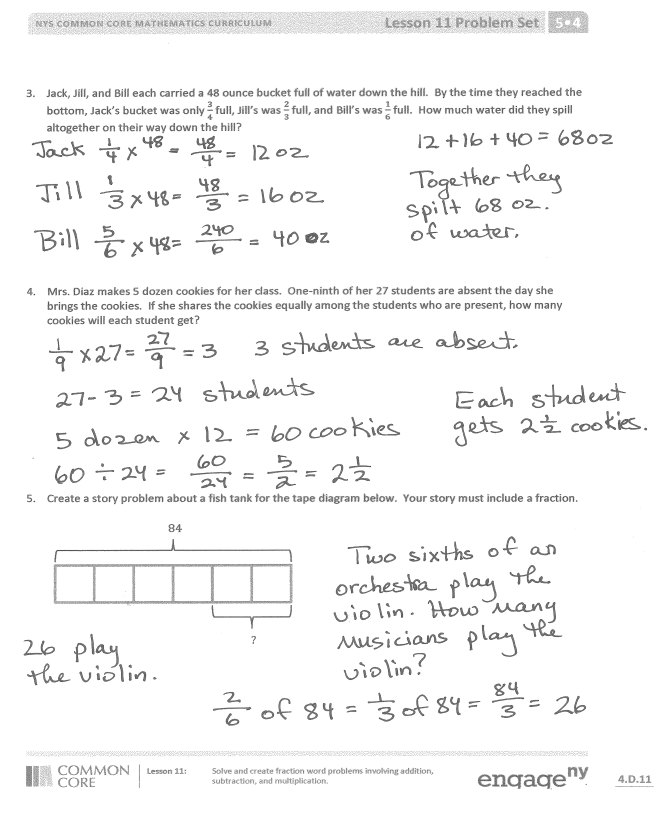 NYS COMMON CORE MATHEMATICS CURRICULUM Lesson 11 Problem Set 5•4
3. Jack, Jill, and Bill each carried a 48 ounce bucket full of water down the hill. By the time they reached the
bottom, Jack's bucket was only 3/4 full, Jill's was 2/3 full, and Bill's was 1/6 full. How much water did they spill
altogether on their way down the hill?
Jack 1/4 x 48 = 48/4 = 12 oz
12 + 16 + 40 = 68 oz
Jill 1/3 x 48 = 48/3 = 16 oz
Bill 5/6 x 48 = 240/6 = 40 oz
Together they
spilt 68 oz.
of water.
4. Mrs. Diaz makes 5 dozen cookies for her class. One-ninth of her 27 students are absent the day she
brings the cookies. If she shares the cookies equally among the students who are present, how many
cookies will each student get?
1/9 x 27 = 27/9 = 3 3 students are absent.
27 - 3 = 24 students
5 dozen x 12 = 60 cookies
60 ÷ 24 = 60/24 = 5/2 = 2 1/2
Each student
gets 2 1/2 cookies.
5. Create a story problem about a fish tank for the tape diagram below. Your story must include a fraction.
84
?
Two sixths of an
orchestra play the
violin. How many
musicians play the
violin?
26 play
the violin.
2/6 of 84 = 1/3 of 84 = 84/3 = 26
COMMON
CORE
Lesson 11: Solve and create fraction word problems involving addition,
subtraction, and multiplication.
engage ny
4.D.11